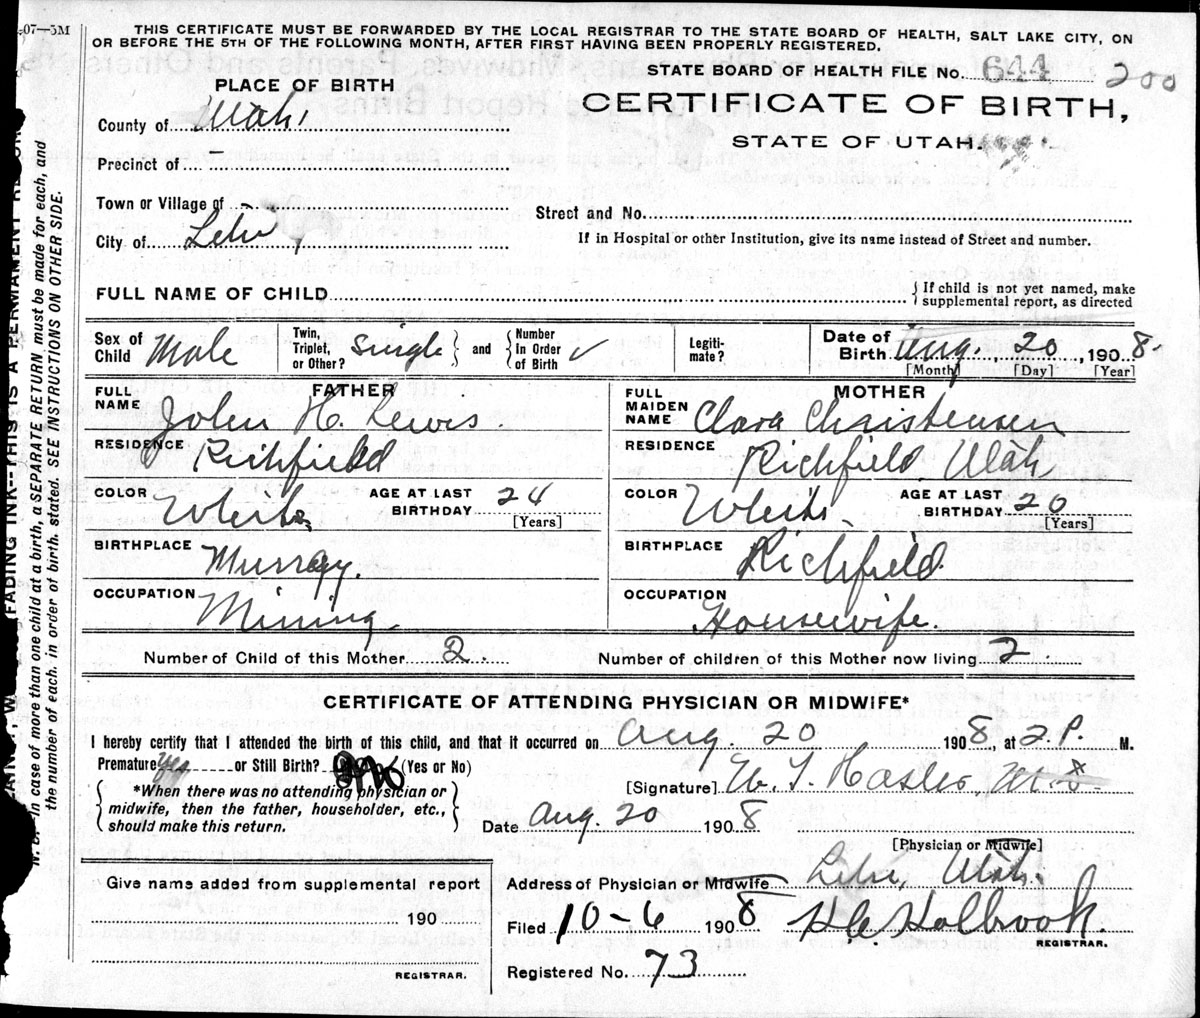 -07—5M
THIS CERTIFICATE MUST BE FORWARDED BY THE LOCAL REGISTRAR TO THE STATE BOARD OF HEALTH, SALT LAKE CITY, ON
OR BEFORE THE 5TH OF THE FOLLOWING MONTH, AFTER FIRST HAVING BEEN PROPERLY REGISTERED.
STATE BOARD OF HEALTH FILE NO. 644 200
PLACE OF BIRTH
CERTIFICATE OF BIRTH,
STATE OF UTAH.
County of Utah
Precinct of —
Town or Village of
City of Lehi,
Street and No.
If in Hospital or other Institution, give its name instead of Street and number.
FULL NAME OF CHILD
{ If child is not yet named, make
supplemental report, as directed
Sex of Child Male
Twin, Triplet, or Other? Single } and { Number In Order of Birth ✓
Legiti-mate?
Date of Birth Aug. 20, 1908.
[Month] [Day] [Year]
FATHER
FULL NAME John H. Lewis.
RESIDENCE Richfield
COLOR White
AGE AT LAST BIRTHDAY 24
[Years]
BIRTHPLACE Murray.
OCCUPATION Mining.
MOTHER
FULL MAIDEN NAME Clara Christensen
RESIDENCE Richfield Utah
COLOR White.
AGE AT LAST BIRTHDAY 20
[Years]
BIRTHPLACE Richfield.
OCCUPATION Housewife.
Number of Child of this Mother 2.
Number of children of this Mother now living 2.
CERTIFICATE OF ATTENDING PHYSICIAN OR MIDWIFE*
I hereby certify that I attended the birth of this child, and that it occurred on Aug. 20 1908, at 2.P. M.
Premature yes or Still Birth? no (Yes or No)
{ *When there was no attending physician or
midwife, then the father, householder, etc.,
should make this return. }
[Signature] W. T. Hasler, M.D.
Date Aug. 20 1908
[Physician or Midwife]
Give name added from supplemental report
190
REGISTRAR.
Address of Physician or Midwife Lehi, Utah.
Filed 10-6 1908 H.C. Holbrook.
REGISTRAR.
Registered No. 73
FADING INK--THIS IS A PERMANENT
In case of more than one child at a birth, a SEPARATE RETURN must be made for each, and
the number of each, in order of birth, stated. SEE INSTRUCTIONS ON OTHER SIDE.